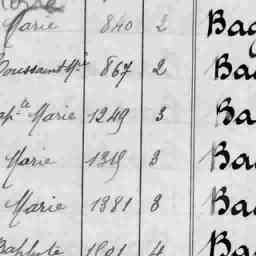 Marie 840 2 Bag
Toussaint Mie 867 2 Ba
Marie 1249 3 Ba
Marie 1319 3 Ba
Marie 1381 3 Ba
Baptiste 4 Ba